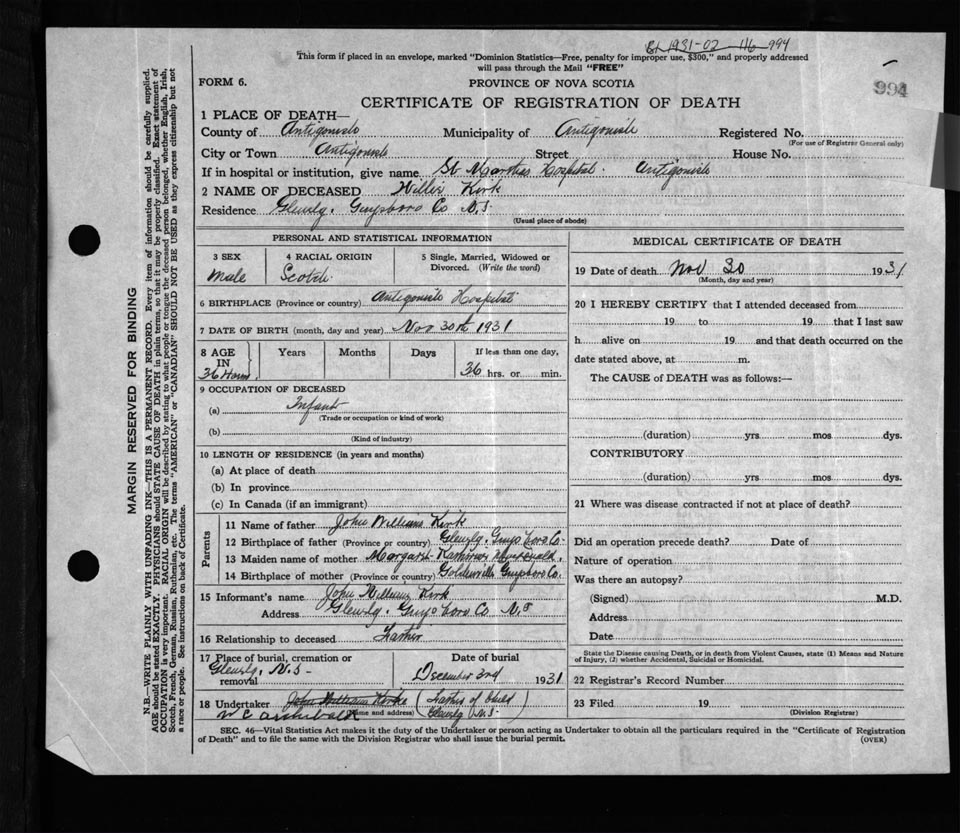 1931-02-116-994
This form if placed in an envelope, marked "Dominion Statistics—Free, penalty for improper use, $300," and properly addressed
will pass through the Mail "FREE"
994
FORM 6.
PROVINCE OF NOVA SCOTIA
CERTIFICATE OF REGISTRATION OF DEATH
1 PLACE OF DEATH—
County of Antigonish Municipality of Antigonish Registered No.
(For use of Registrar General only)
City or Town Antigonish Street House No.
If in hospital or institution, give name St Marthas Hospital. Antigonish
2 NAME OF DECEASED Kirk
Residence Glenelg, Guysboro Co N.S
(Usual place of abode)
PERSONAL AND STATISTICAL INFORMATION
3 SEX 4 RACIAL ORIGIN 5 Single, Married, Widowed or
Divorced. (Write the word)
Male Scotch
6 BIRTHPLACE (Province or country) Antigonish Hospital
7 DATE OF BIRTH (month, day and year) Nov 30th 1931
8 AGE Years Months Days If less than one day,
IN
36 Hours. 36 hrs. or min.
9 OCCUPATION OF DECEASED
(a) Infant
(Trade or occupation or kind of work)
(b)
(Kind of industry)
10 LENGTH OF RESIDENCE (in years and months)
(a) At place of death
(b) In province
(c) In Canada (if an immigrant)
Parents
11 Name of father John William Kirk
12 Birthplace of father (Province or country) Glenelg, Guysboro Co.
13 Maiden name of mother Margaret
14 Birthplace of mother (Province or country) Goldenville Guysboro Co.
15 Informant's name John William Kirk
Address Glenelg, Guysboro Co. N S
16 Relationship to deceased Father
17 Place of burial, cremation or Date of burial
Glenelg, N.S.
removal December 3rd 1931
18 Undertaker John William Kirk (Father of child
W C Archibald (Name and address) Glenelg N.S)
MEDICAL CERTIFICATE OF DEATH
19 Date of death Nov 30 1931
(Month, day and year)
20 I HEREBY CERTIFY that I attended deceased from
19 to 19 that I last saw
h alive on 19 and that death occurred on the
date stated above, at m.
The CAUSE of DEATH was as follows:—
(duration) yrs mos dys.
CONTRIBUTORY
(duration) yrs mos dys.
21 Where was disease contracted if not at place of death?
Did an operation precede death? Date of
Nature of operation
Was there an autopsy?
(Signed) M.D.
Address
Date
State the Disease causing Death, or in death from Violent Causes, state (1) Means and Nature
of Injury, (2) whether Accidental, Suicidal or Homicidal.
22 Registrar's Record Number
23 Filed 19
(Division Registrar)
SEC. 46—Vital Statistics Act makes it the duty of the Undertaker or person acting as Undertaker to obtain all the particulars required in the "Certificate of Registration
of Death" and to file the same with the Division Registrar who shall issue the burial permit.
(OVER)
MARGIN RESERVED FOR BINDING
N.B.—WRITE PLAINLY WITH UNFADING INK—THIS IS A PERMANENT RECORD. Every item of information should be carefully supplied.
AGE should be stated EXACTLY. PHYSICIANS should STATE CAUSE OF DEATH in plain terms, so that it may be properly classified. Exact statement of
OCCUPATION is very important. RACIAL ORIGIN will be described by stating to what people or tongue the deceased person belonged, whether English, Irish,
Scotch, French, German, Russian, Ruthenian, etc. The terms "AMERICAN" or "CANADIAN" SHOULD NOT BE USED as they express citizenship but not
a race or people. See instructions on back of Certificate.